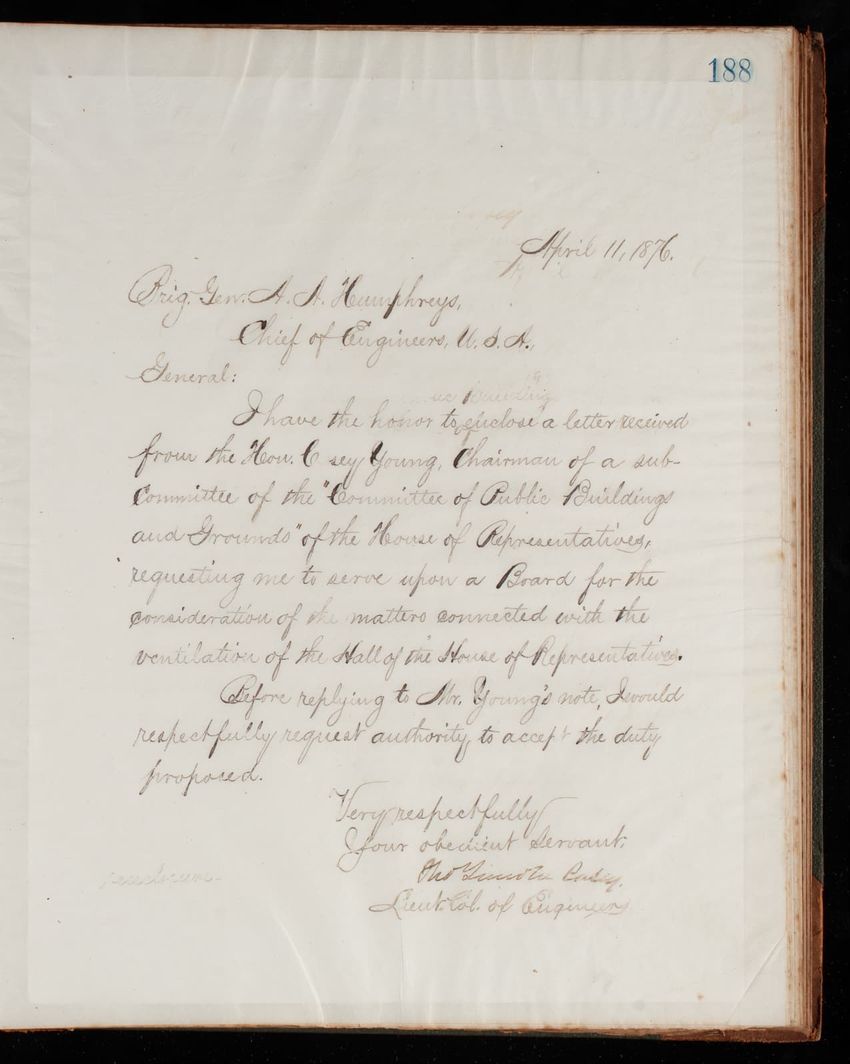 188
April 11, 1876.
Brig. Gen. A. A. Humphreys,
Chief of Engineers, U. S. A.,
General:
I have the honor to enclose a letter received
from the Hon. C sey Young, Chairman of a sub-
Committee of the "Committee of Public Buildings
and Grounds" of the House of Representatives,
requesting me to serve upon a Board for the
consideration of the matters connected with the
ventilation of the Hall of the House of Representatives.
Before replying to Mr. Young's note, I would
respectfully request authority to accept the duty
proposed.
Very respectfully
Your obedient Servant.
Thos Lincoln Casey.
Lieut. Col. of Engineers